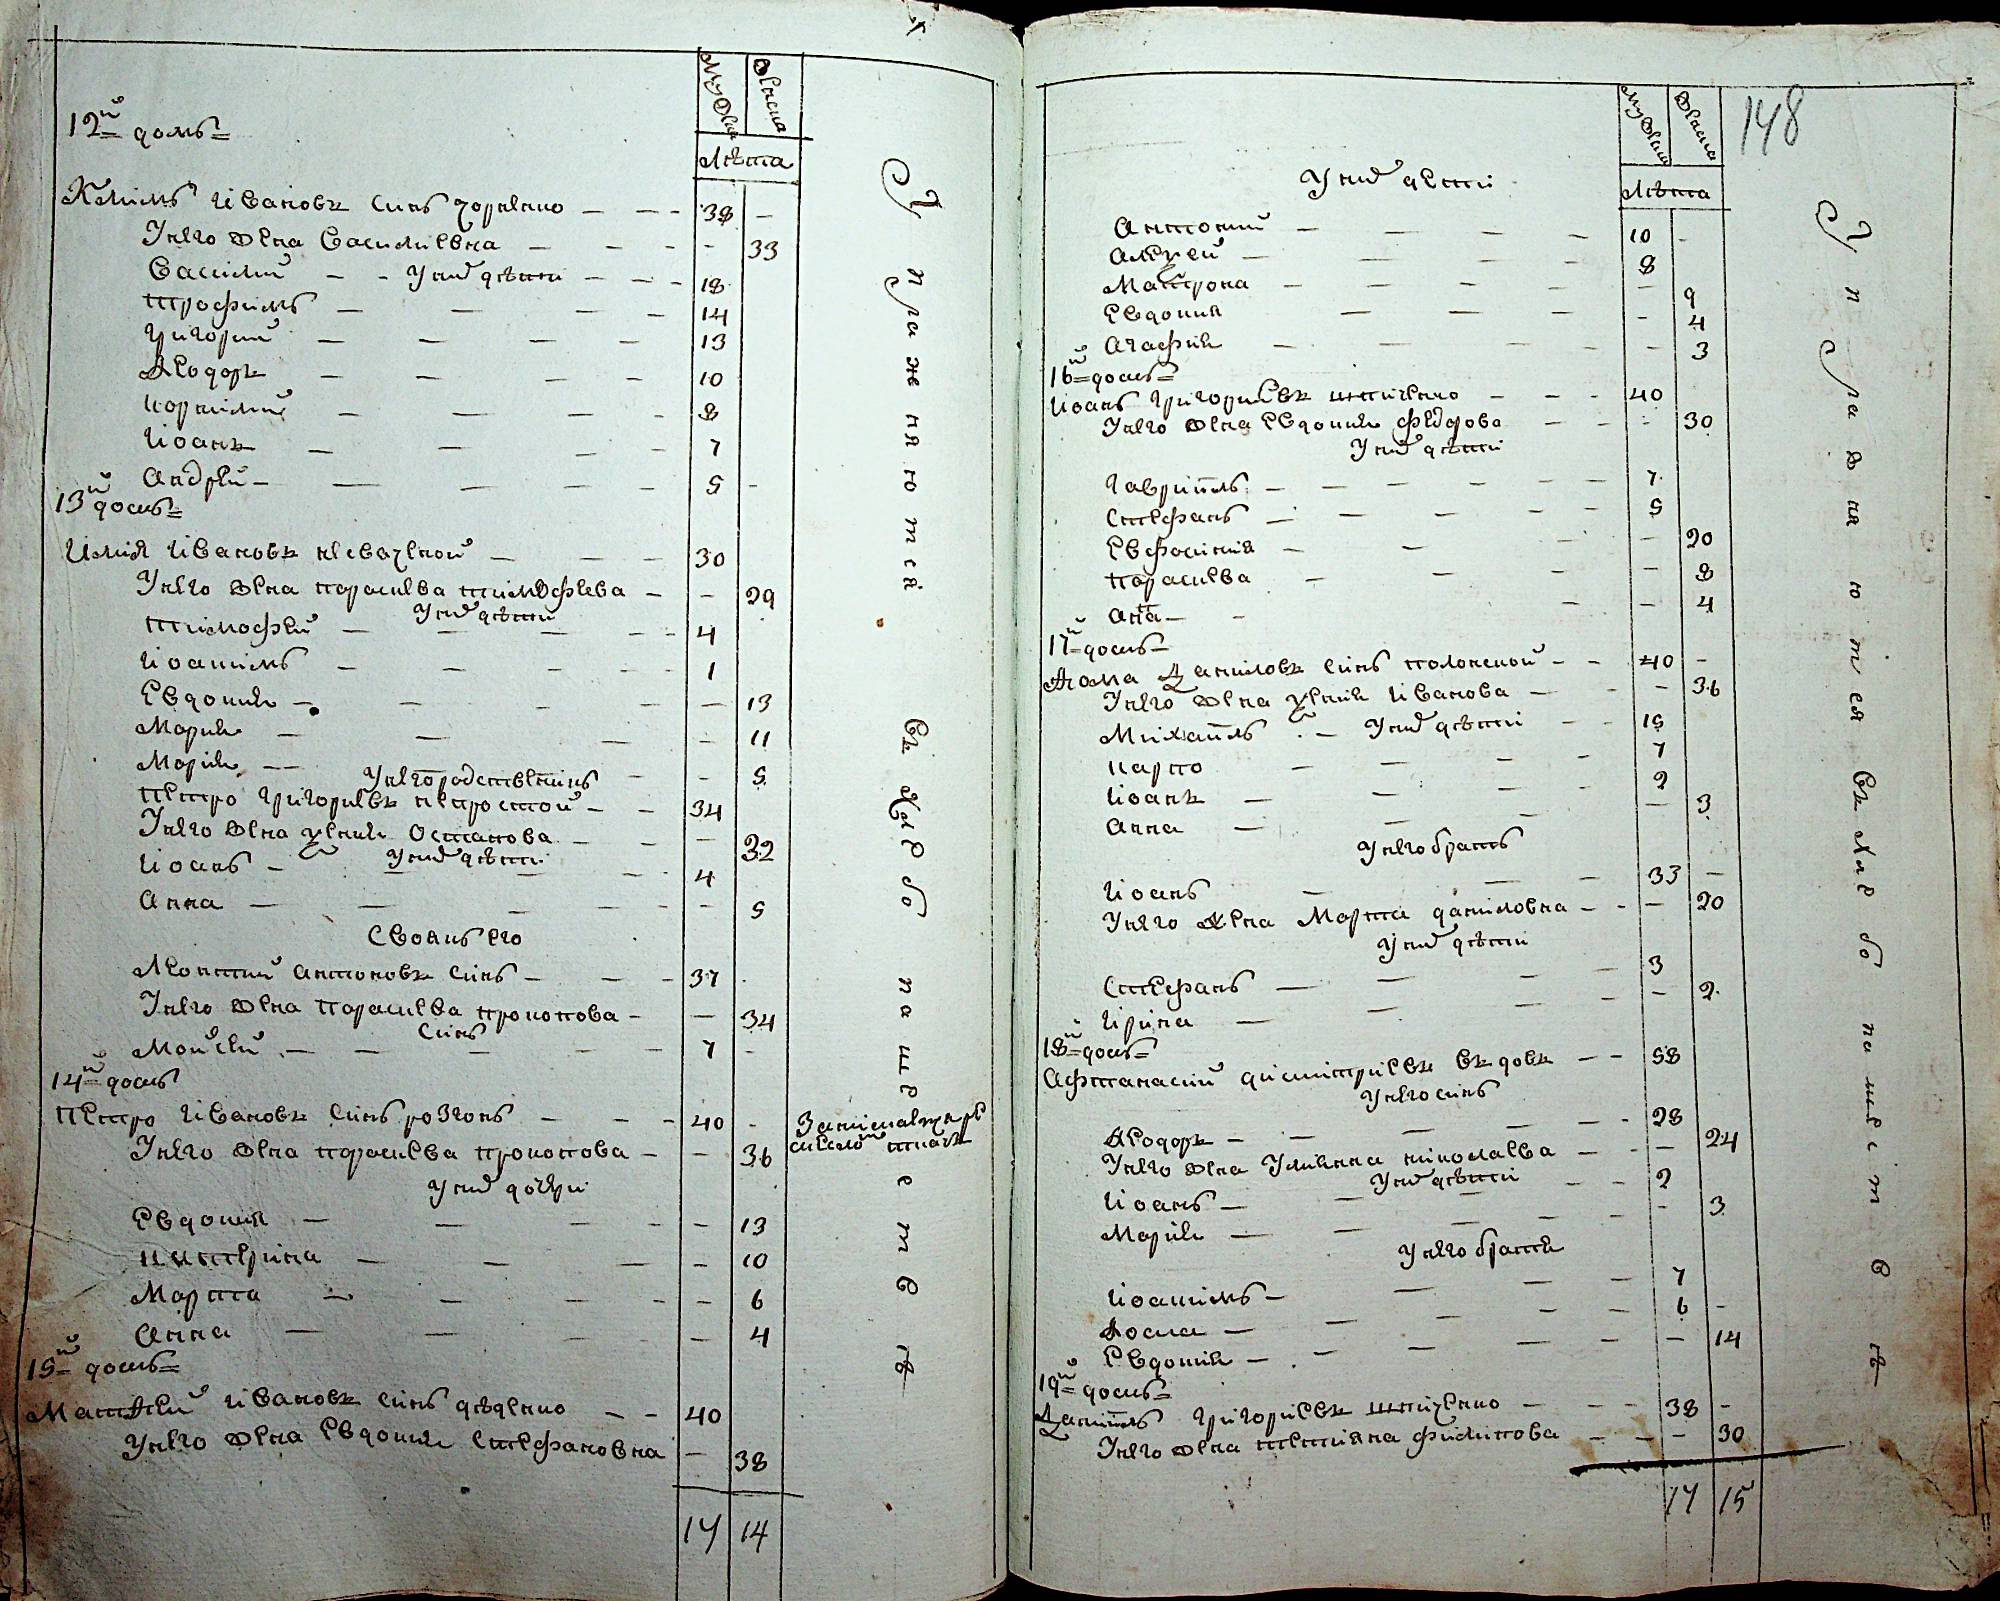 Мужска
Женска
Лѣта
12й домъ
Климъ Ивановъ синъ 38
У него жена Василиевна 33
Василий У них дѣти 18
Трофимъ 14
Григорий 13
Ѳеодоръ 10
Корнилий 8
Иоанъ 7
Андрей 5
13й домъ
Илия Ивановъ 30
У него жена Параскева Тимофеева 29
У них дѣти
Тимофей 4
Иоакимъ 1
Евдокия 13
Мария 11
Мария 5
У него родственникъ
Петро Григориевъ 34
У него жена Ксения Остапова 32
Иоанъ У них дѣти 4
Анна 5
Своякъ его
Леонтий Антоновъ синъ 37
У него жена Параскева Прокопова 34
Синъ
Мойсей 7
14й домъ
Петро Ивановъ синъ Розгонъ 40
У него жена Параскева Прокопова 36
У них дочери
Евдокия 13
Катерина 10
Марѳа 6
Анна 4
15й домъ
Матѳей Ивановъ синъ Дѣденко 40
У него жена Евдокия Стефановна 38
17 14
Упражняются въ хлебопашествѣ
148
Мужска
Женска
Лѣта
У них дети
Антоний 10
Алексей 8
Матрона 9
Евдокия 4
Агафия 3
16й домъ
Иоанъ Григориевъ 40
У него жена Евдокия Федорова 30
У них дѣти
Гавриилъ 7
Стефанъ 5
Евфросиния 20
Параскева 8
Анна 4
17й домъ
Ѳома Даниловъ синъ Полонской 40
У него жена Ксения Иванова 36
Михаилъ У них дѣти 15
Карпо 7
Иоанъ 2
Анна 3
У него братъ
Иоанъ 33
У него жена Марѳа Даниловна 20
У них дѣти
Стефанъ 3
Ирина 2
18й домъ
Афанасий Димитриевъ вдовъ 58
У него синъ
Ѳеодоръ 28
У него жена Улияна Николаева 24
У них дѣти
Иоанъ 2
Мария 3
У него братия
Иоакимъ 7
Ѳома 6
Евдокия 14
19й домъ
Даниилъ Григориевъ 38
У него жена Тетияна Филипова 30
17 15
Упражняются въ хлебопашествѣ